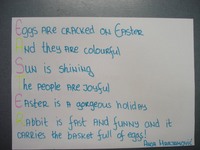 EGGS ARE CRACKED ON EASTER
AND THEY ARE COLOURFUL
SUN IS SHINING
THE PEOPLE ARE JOYFUL
EASTER IS A GORGEOUS HOLIDAY
RABBIT IS FAST AND FUNNY AND IT
CARRIES THE BASKET FULL OF EGGS!